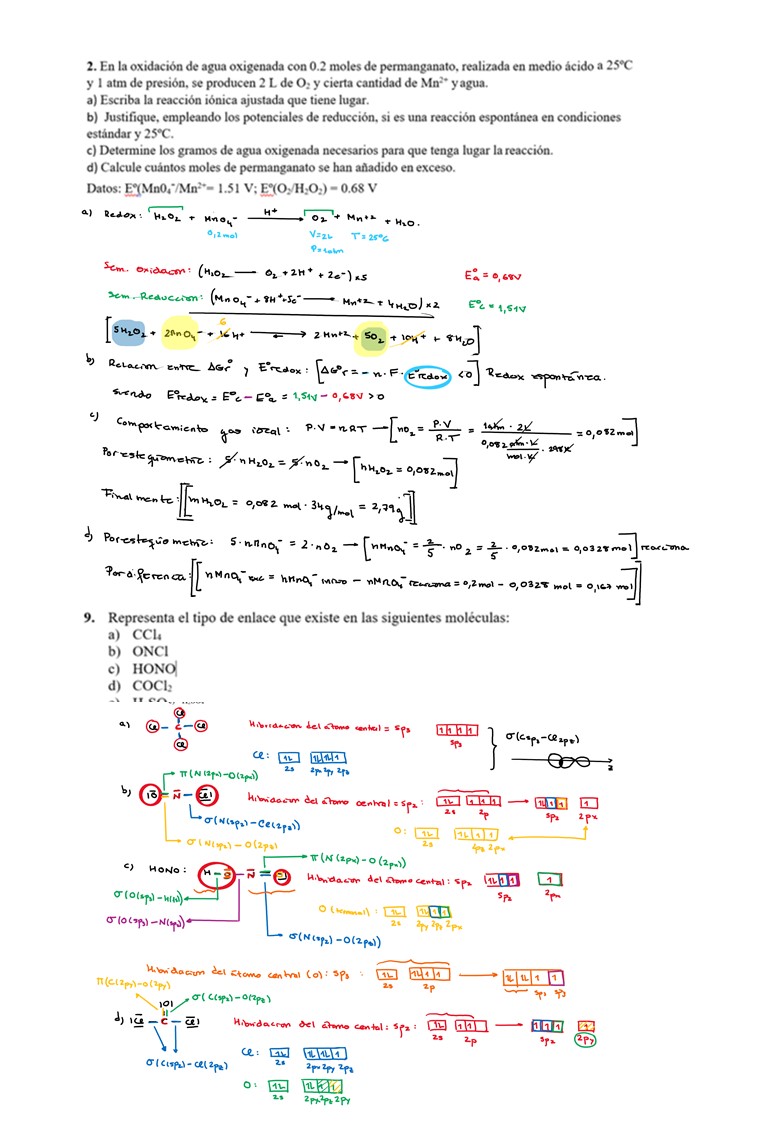 2. En la oxidación de agua oxigenada con 0.2 moles de permanganato, realizada en medio ácido a 25ºC
y 1 atm de presión, se producen 2 L de O₂ y cierta cantidad de Mn²⁺ y agua.
a) Escriba la reacción iónica ajustada que tiene lugar.
b) Justifique, empleando los potenciales de reducción, si es una reacción espontánea en condiciones
estándar y 25ºC.
c) Determine los gramos de agua oxigenada necesarios para que tenga lugar la reacción.
d) Calcule cuántos moles de permanganato se han añadido en exceso.
Datos: Eº(MnO₄⁻/Mn²⁺= 1.51 V; Eº(O₂/H₂O₂) = 0.68 V
a) Redox: H₂O₂ + MnO₄⁻ H⁺ → O₂ + Mn+2 + H₂O.
0,2 mol V=2L T=25ºC
P=1atm
Sem. Oxidación: (H₂O₂ — O₂ + 2H⁺ + 2e⁻) x5 Eºa = 0,68V
Sem. Reducción: (MnO₄⁻ + 8H⁺ + 5e⁻ → Mn+2 + 4H₂O) x2 Eºc = 1,51V
6
[5H₂O₂ + 2MnO₄⁻ + 16H+ ⟷ 2Mn+2 + 5O₂ + 10H+ + 8H₂O]
b) Relación entre ΔGrº y Eºredox: [ΔGºr = - n · F · Eºredox <0] Redox espontánea.
siendo Eºredox = Eºc - Eºa = 1,51V - 0,68V > 0
c) Comportamiento gas ideal: P·V = nRT → [nO₂ = P·V / R·T = 1atm · 2L / 0,082 atm·L/mol·K · 298K = 0,082 mol]
Por estequiometría: 5·nH₂O₂ = 5·nO₂ → [nH₂O₂ = 0,082 mol]
Finalmente: [[mH₂O₂ = 0,082 mol · 34g/mol = 2,79g]]
d) Por estequiometría: 5·nMnO₄⁻ = 2·nO₂ → [nMnO₄⁻ = 2/5 · nO₂ = 2/5 · 0,082mol = 0,0328 mol] reacciona
Por diferencia: [[nMnO₄⁻ exc = nMnO₄⁻ inicio - nMnO₄⁻ reacciona = 0,2 mol - 0,0328 mol = 0,167 mol]]
9. Representa el tipo de enlace que existe en las siguientes moléculas:
a) CCl₄
b) ONCl
c) HONO
d) COCl₂
a) Cl Cl - C - Cl Cl Hibridación del átomo central = sp₃ sp₃ σ(Csp₃-Cl2pz)
Cl: 2s 2px 2py 2pz z
π(N(2px)-O(2px))
b) |O = N - Cl| Hibridación del átomo central = sp₂: 2s 2p → sp₂ 2px
σ(N(sp₂)-Cl(2pz))
σ(N(sp₂)-O(2pz)) O: 2s 2pz 2px
c) HONO: H - O - N = O π(N(2px)-O(2px))
Hibridación del átomo central: sp₂ sp₂ 2px
σ(O(sp₃)-H(1s))
σ(O(sp₃)-N(sp₂)) O (terminal): 2s 2py 2pz 2px
σ(N(sp₂)-O(2pz))
Hibridación del átomo central (O): sp₃ 2s 2p → sp₃ sp₃
π(C(2py)-O(2py)) |O| σ(C(sp₂)-O(2pz))
d) |Cl - C - Cl| Hibridación del átomo central: sp₂: 2s 2p → sp₂ 2py
σ(C(sp₂)-Cl(2pz)) Cl: 2s 2px 2py 2pz
O: 2s 2px 2pz 2py